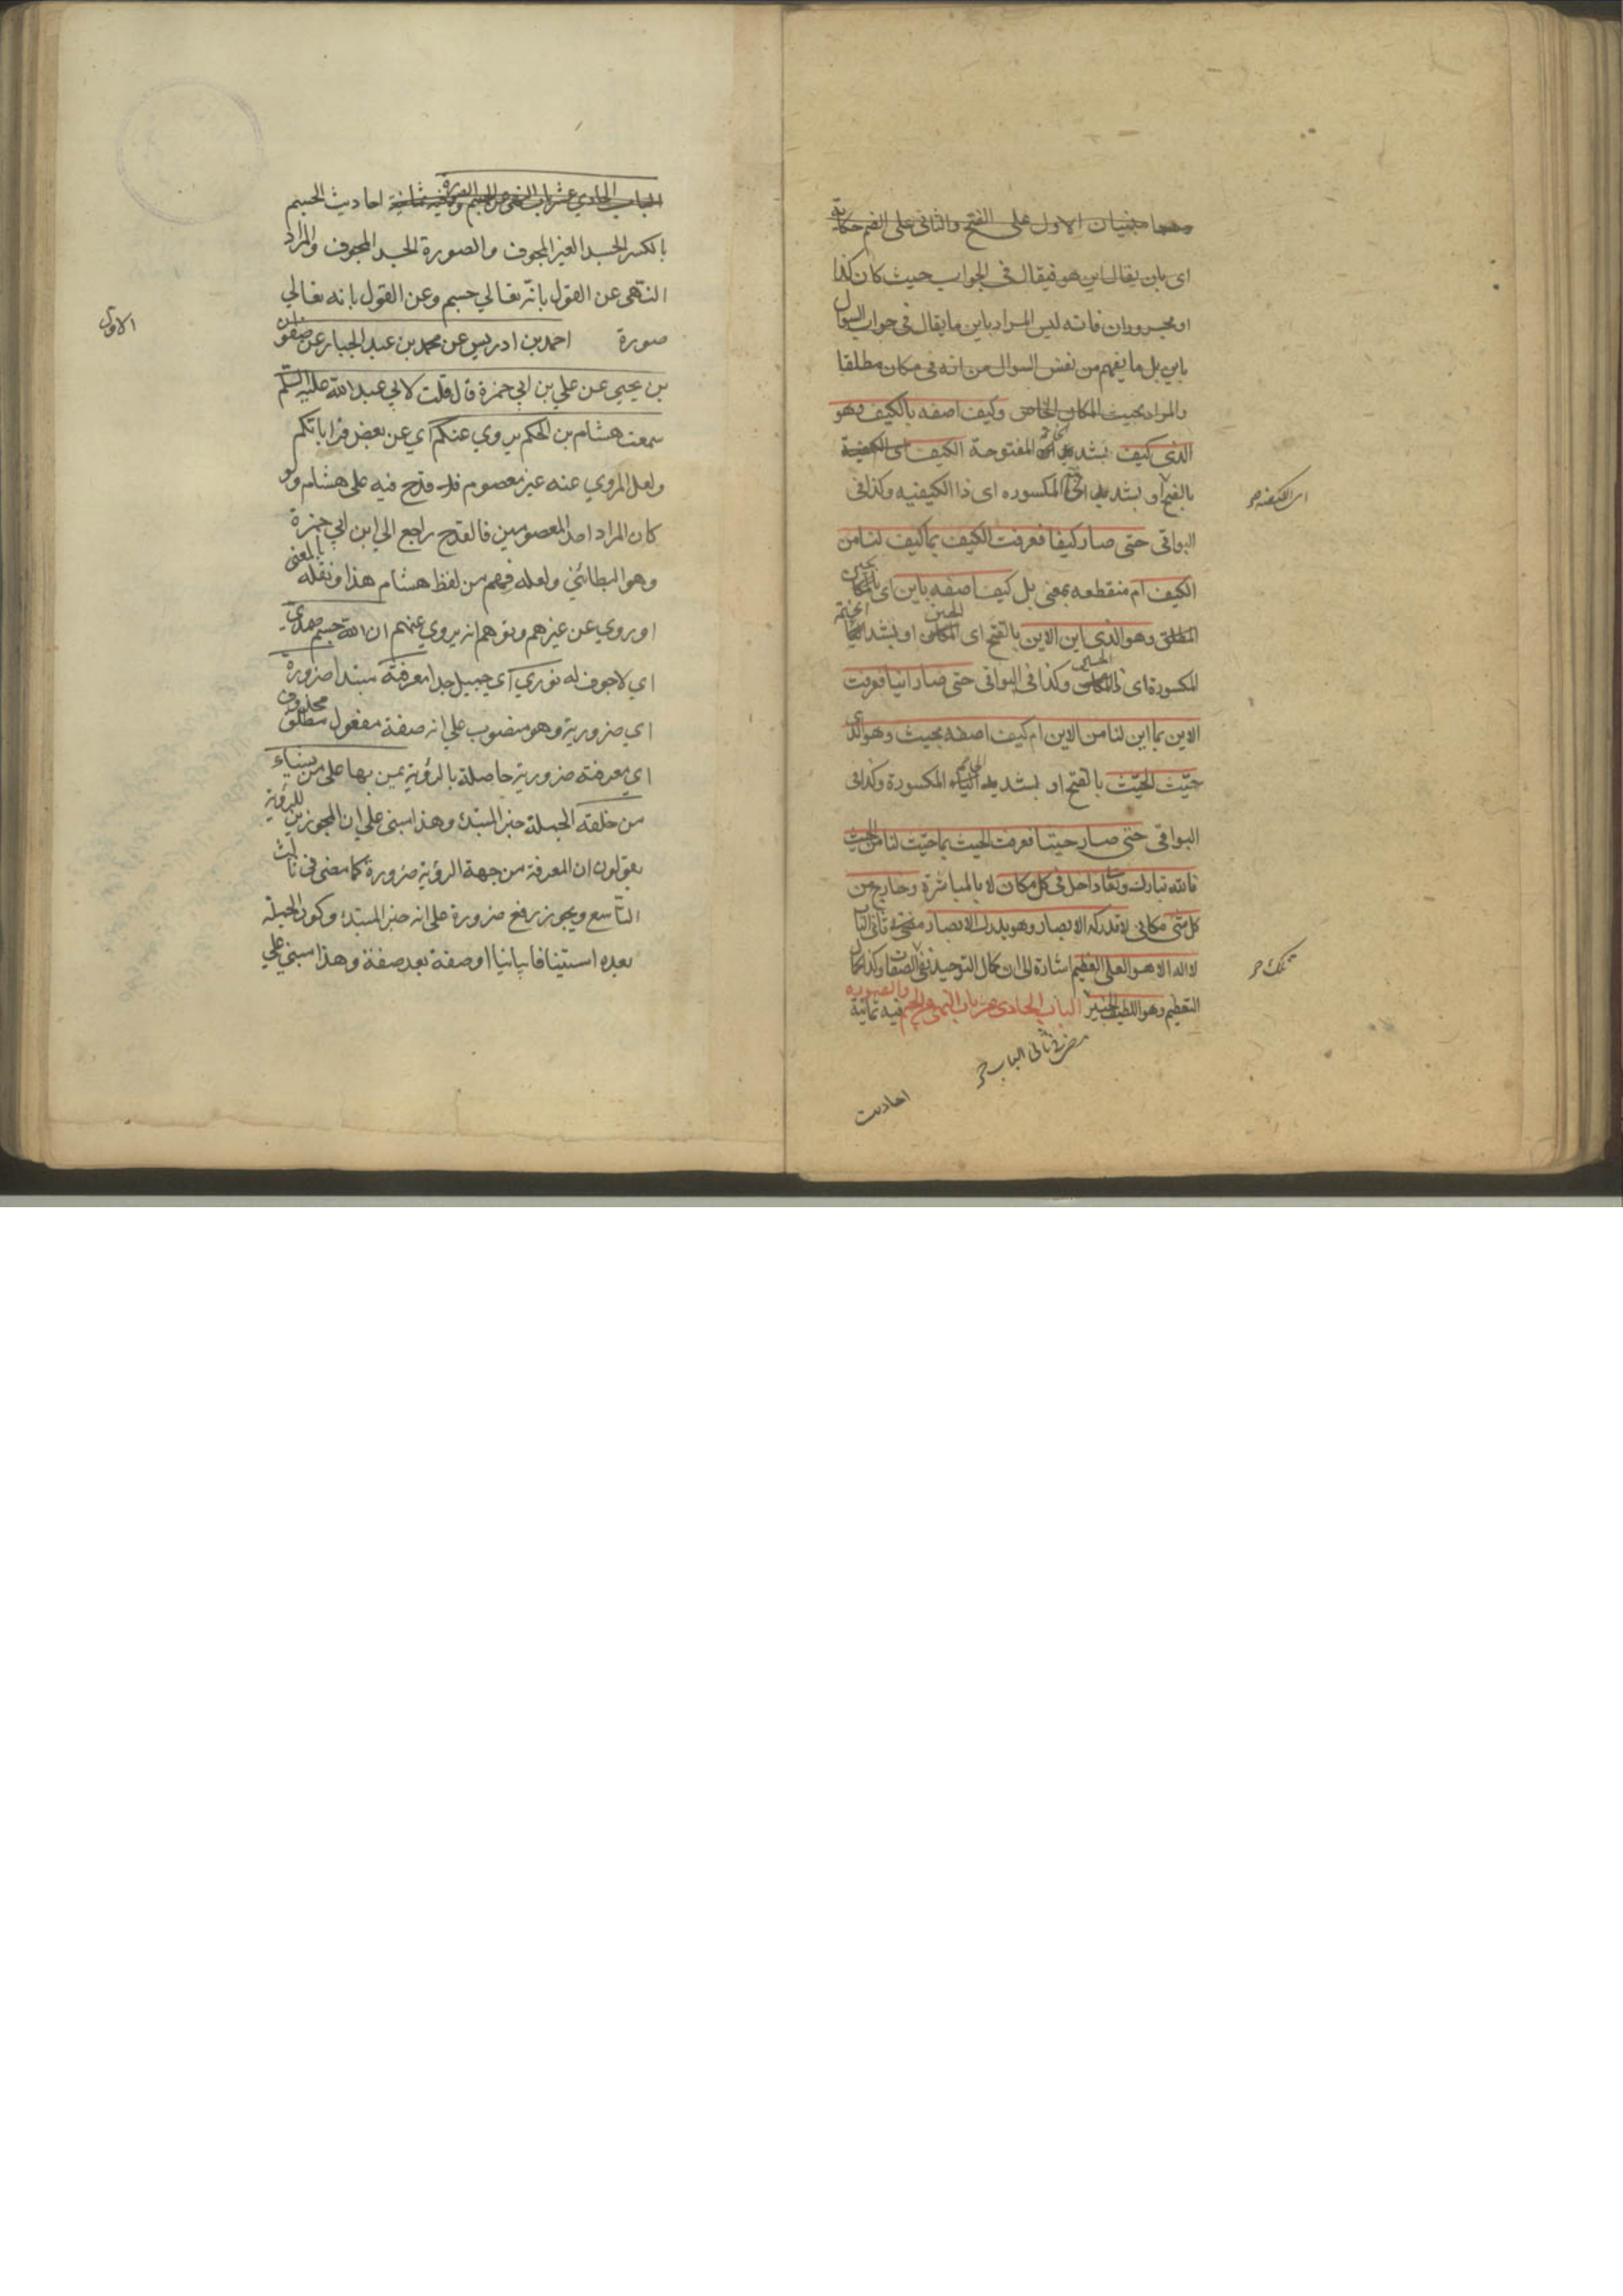 وهما مبنيان الاول على الفتح والثانى على الضم حكاية
اى بان يقال اين هو فيقال فى الجواب حيث كان كذا
او مجروران فانه ليس المراد باين ما يقال فى جواب السوال
باين بل ما يفهم من نفس السوال من انه فى مكان مطلقا
والمراد بحيث المكان الخاص وكيف اصفه بالكيف وهو
الذى كيف بشد المفتوحة الكيف اى الكيفية
بالفتح او بشد المكسوره اى ذا الكيفيه وكذا فى
البواقى حتى صار كيفا فعرفت الكيف بما كيف لنا من
الكيف ام منقطعه بمعنى بل كيف اصفه باين اى
المطلق وهو الذى اين الاين بالفتح اى المكان او بشد
المكسورة اى وكذا فى البواقى حتى صار اينا فعرفت
الاين بما اين لنا من الاين ام كيف اصفه بحيث وهو الذى
حيّث الحيّث بالفتح او بشد الياء المكسورة وكذا فى
البواقى حتى صار حيثا فعرفت الحيث بما حيّث لنا من الحيث
فالله تبارك وتعا داخل فى كل مكان لا بالمباشرة وخارج من
كل شى مكانى لا تدركه الابصار وهو يدرك الابصار مضى فى ثانى الباب
لا اله الا هو العلى العظيم اشارة الى ان كمال التوحيد نفى الصفات وكذا كمال
التعظيم وهو اللطيف الخبير الباب الحادى عشر باب النهى عن الجسم والصوره فيه ثمانية
مضى فى ثانى الباب
احاديث
الباب الحادي عشر باب النهى عن الجسم والصورة وفيه ثمانية احاديث الجسم
بالكسر الجسد الغير المجوف والصورة الجسد المجوف والمراد
النهى عن القول بانه تعالي جسم وعن القول بانه تعالي
صورة احمد بن ادريس عن محمد بن عبد الجبار عن صفوان
الاول
بن يحيى عن علي بن ابي حمزة قال قلت لابي عبد الله عليه السلام
سمعت هشام بن الحكم يروي عنكم اي عن بعض قراباتكم
ولعل المروي عنه غير معصوم فلا قدح فيه على هشام ولو
كان المراد احد المعصومين فالقدح راجع الي ابن ابي حمزة
وهو البطائني ولعله فهم من لفظ هشام هذا ونقله بالمعنى
او روي عن غيرهم وتوهم انه يروي عنهم ان الله جسم صمدي
اي لا جوف له نوري اي جميل جدا معرفته مبتدا ضرورة
اي ضرورية وهو منصوب علي انه صفة مفعول مطلق محذوف
اي معرفته ضرورية حاصلة بالرؤية يمن بها على من يشاء
من خلقه الجملة خبر المبتدء وهذا مبنى علي ان المجوزين للرؤية
يقولون ان المعرفة من جهة الرؤية ضرورة كما مضى فى ثالث
التاسع ويجوز رفع ضرورة على انه خبر المبتدء وكون الجملة
بعده استينافا بيانيا او صفة بعد صفة وهذا مبني علي